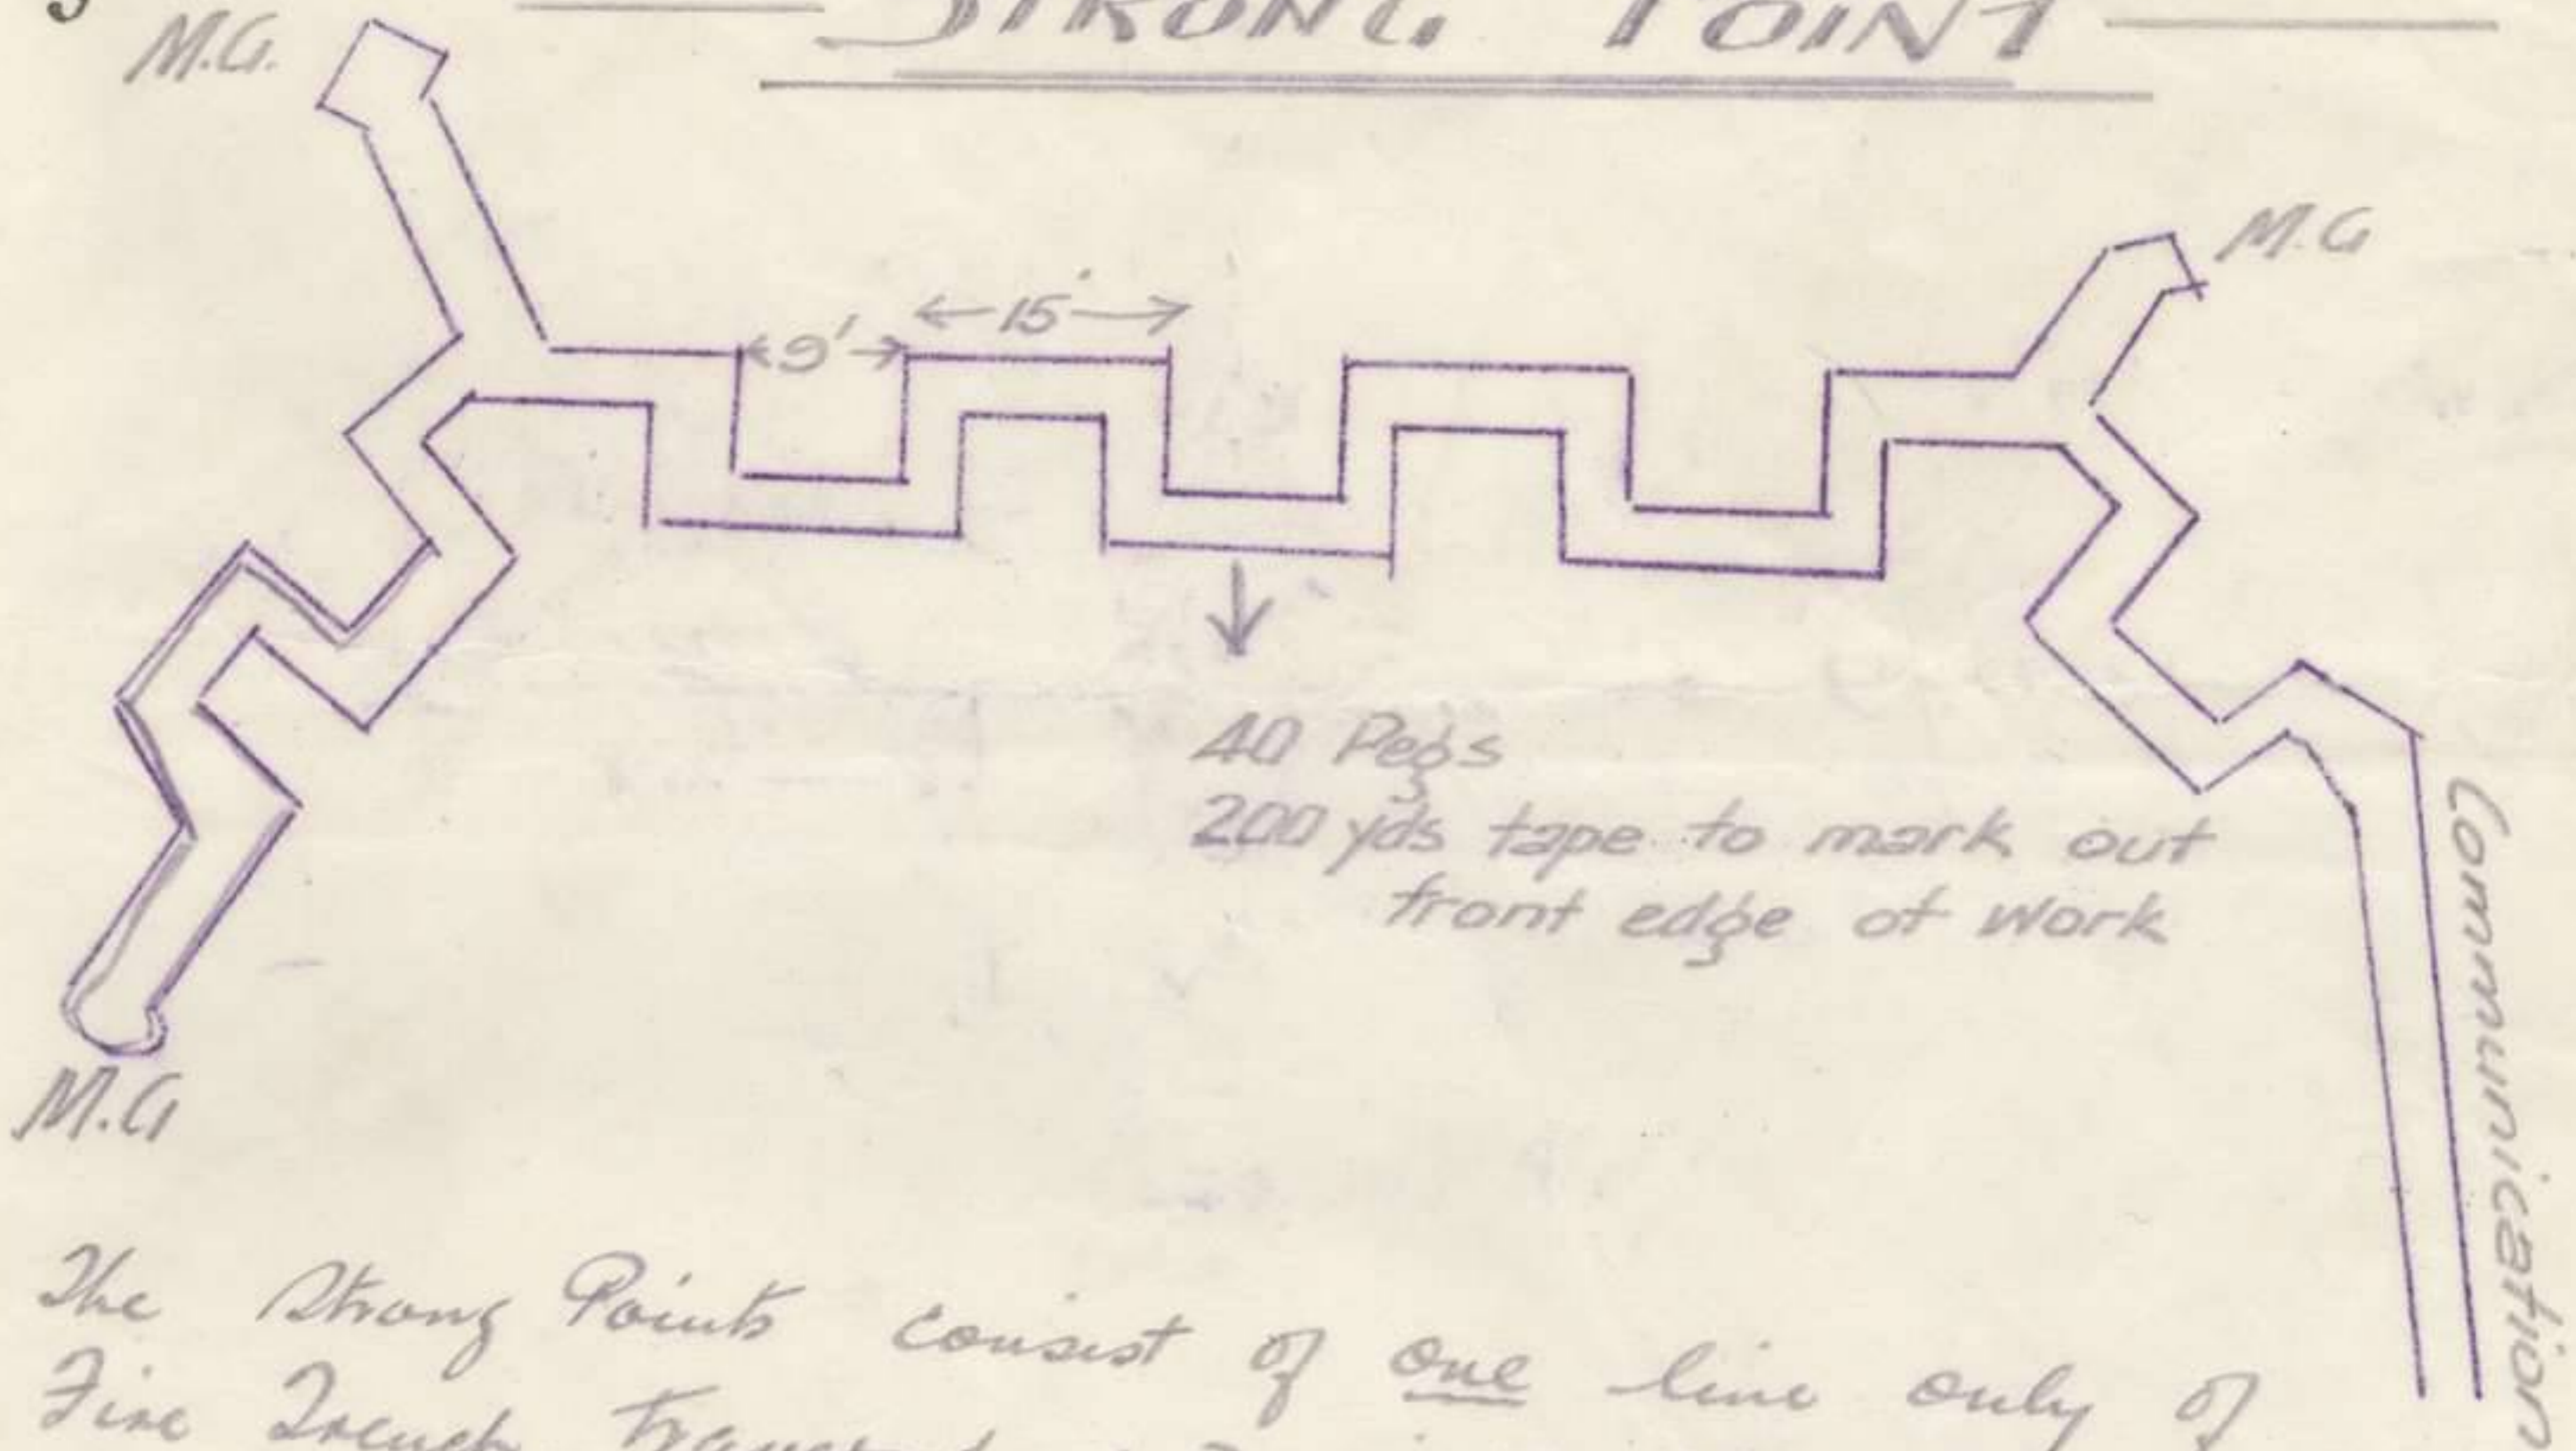 STRONG POINT
M.G.
M.G
15'
9'
40 Pegs
200 yds tape to mark out
front edge of work
Communication
M.G
The Strong Points consist of one line only of
Fire Trench